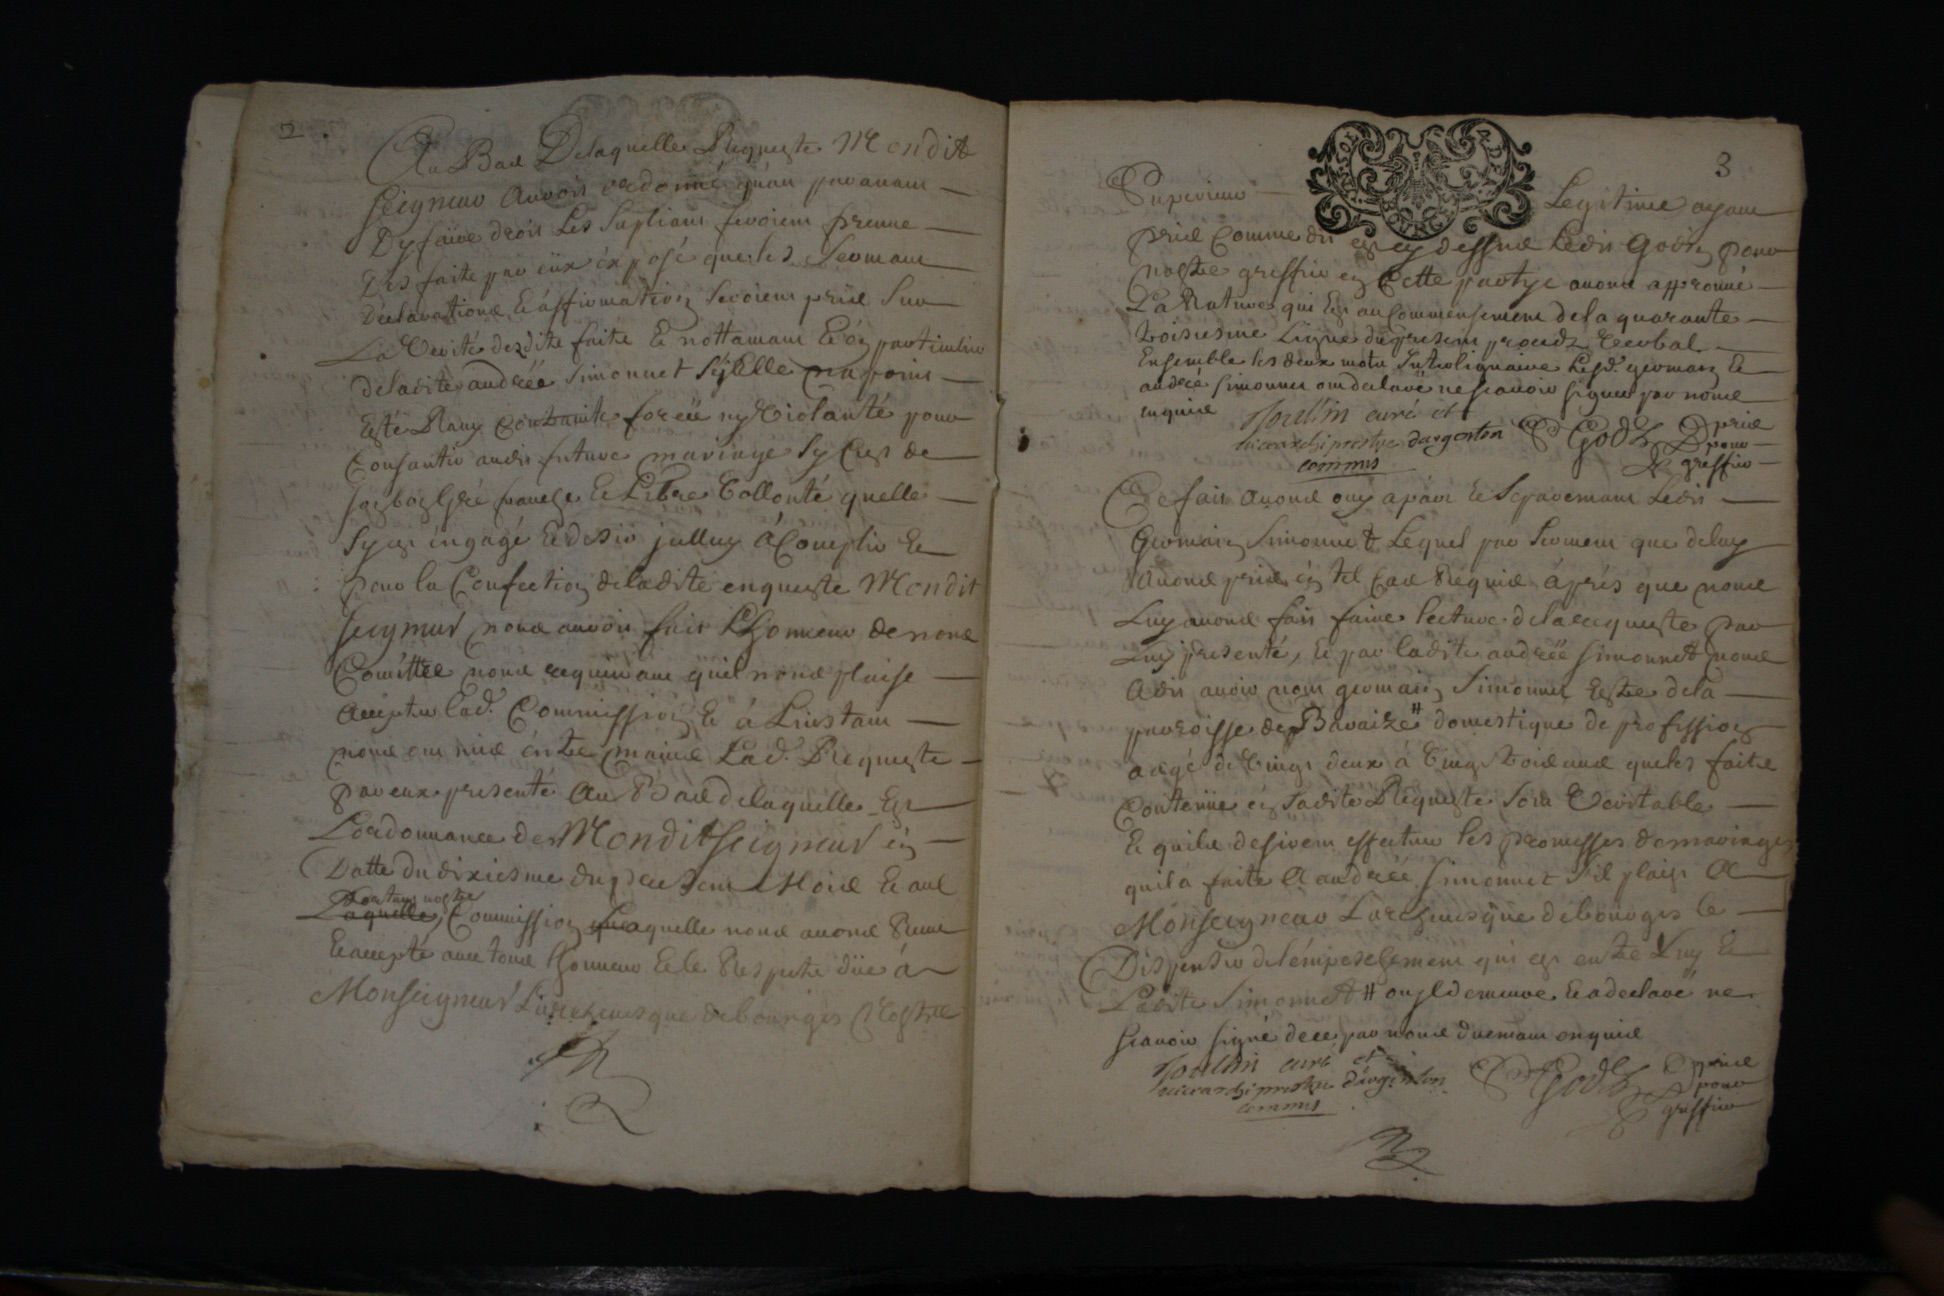 2
Au Bas Delaquelle Requeste Mondit
seigneur auroit ordonné quau paravant
Dy faire droit Les Supliant seroient prenne
Des faits par eux éxposé que les Sermant
Déclarations & affirmations seroient prise sur
La Verité desdits faits Et nottamant Et én particulier
deladite andrée Simonnet Sy Elle na point
Esté Ravy Contrainte forcée ny Violanté pour
Consantir audit futur mariage Sy Cest de
son bon gré franche Et Libre Vollonté quelle
sy est engagé Et desir jalluy áComplir Et
pour la Confection deladite enqueste Mondit
seigneur nous auroit fait Lhonneur de nous
Comettre nous requerant quil nous plaise
accepter Lad. Commission Et á Linstant
nous ont mise éntre mains Lad. Requeste
par eux presenté Au Bas delaquelle Est
Lordonnance de Mondit seigneur én
Datte du dixiesme du present Mois Et an
Portant nostre
Laquelle Commission Laquelle nous avons Reçue
Et accepté avec tous honneur Et le Respects düe á
Monseigneur Larchevesque de bourges Nostre
3
Superieur Legitime ayant
prise Comme dit est cy dessus Ledit Godin pour
nostre greffier en Cette partye avons approuvé
La Rature qui Est au Commensement dela quarante
troisiesme Ligne du present procedz Verbal
Ensemble les deux mots Interlignaire Lesd. germain Et
andrée simonnet ont declaré ne scavoir signer par nous
enquise
Moulin curé et
vicearchiprestre dargenton
commis
Godin
prise
pour
greffier
Ce fait avons ouy apárt Et Separemant Ledit
Germain Simonnet Lequel par Serment que deluy
avons prise én tel Cas Requise áprés que nous
Luy avons fait faire lecture de la requeste par
Luy presenté, Et par ladite andrée simonnet nous
Adit avoir nom germain Simonnet Estre dela
parroisse de Bavaize # domestique de profession
aagé de Vingt deux á Vingt trois ans que les faits
Contenüe én sadite Requeste sont Veritable
Et quils desirent effectuer les promesses de mariage
quila faite A andrée simonnet sil plaist A
Monseigneur Larchevesque de bourges le
Dispenser de lémpeschement qui est entre Luy Et
Ladite Simonnet # ou jl demeure Et a declaré ne
scavoir signé de ce par nous duemant enquise
Moulin curé et
vicearchiprestre d'argenton
commis
Godin
prise
pour
greffier